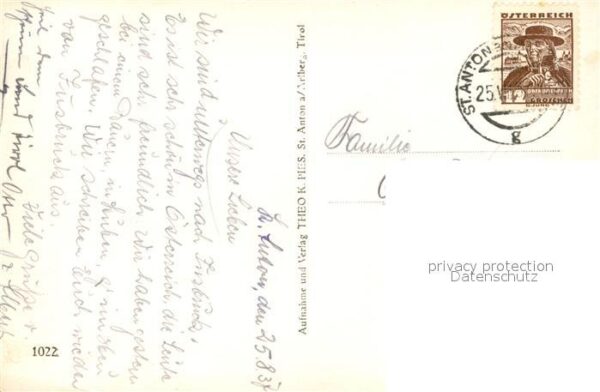 St. Anton, den 25.8.37
Unsere Lieben
Wir sind unterwegs nach Insbruck,
Es ist sehr schön in Österreich, die Leute
sind sehr freundlich. Wir haben gestern
bei einem Bauern, in
geschlafen. Wir schreiben Euch wieder
von Insbruck aus.
Viele Grüße v.
Otto
Aufnahme und Verlag THEO K. PIES, St. Anton a/Arlberg, Tirol
1022
Familie
ÖSTERREICH
12
OBERÖSTERREICH
GROSCHEN
ST. ANTON
25.V
g
privacy protection
Datenschutz